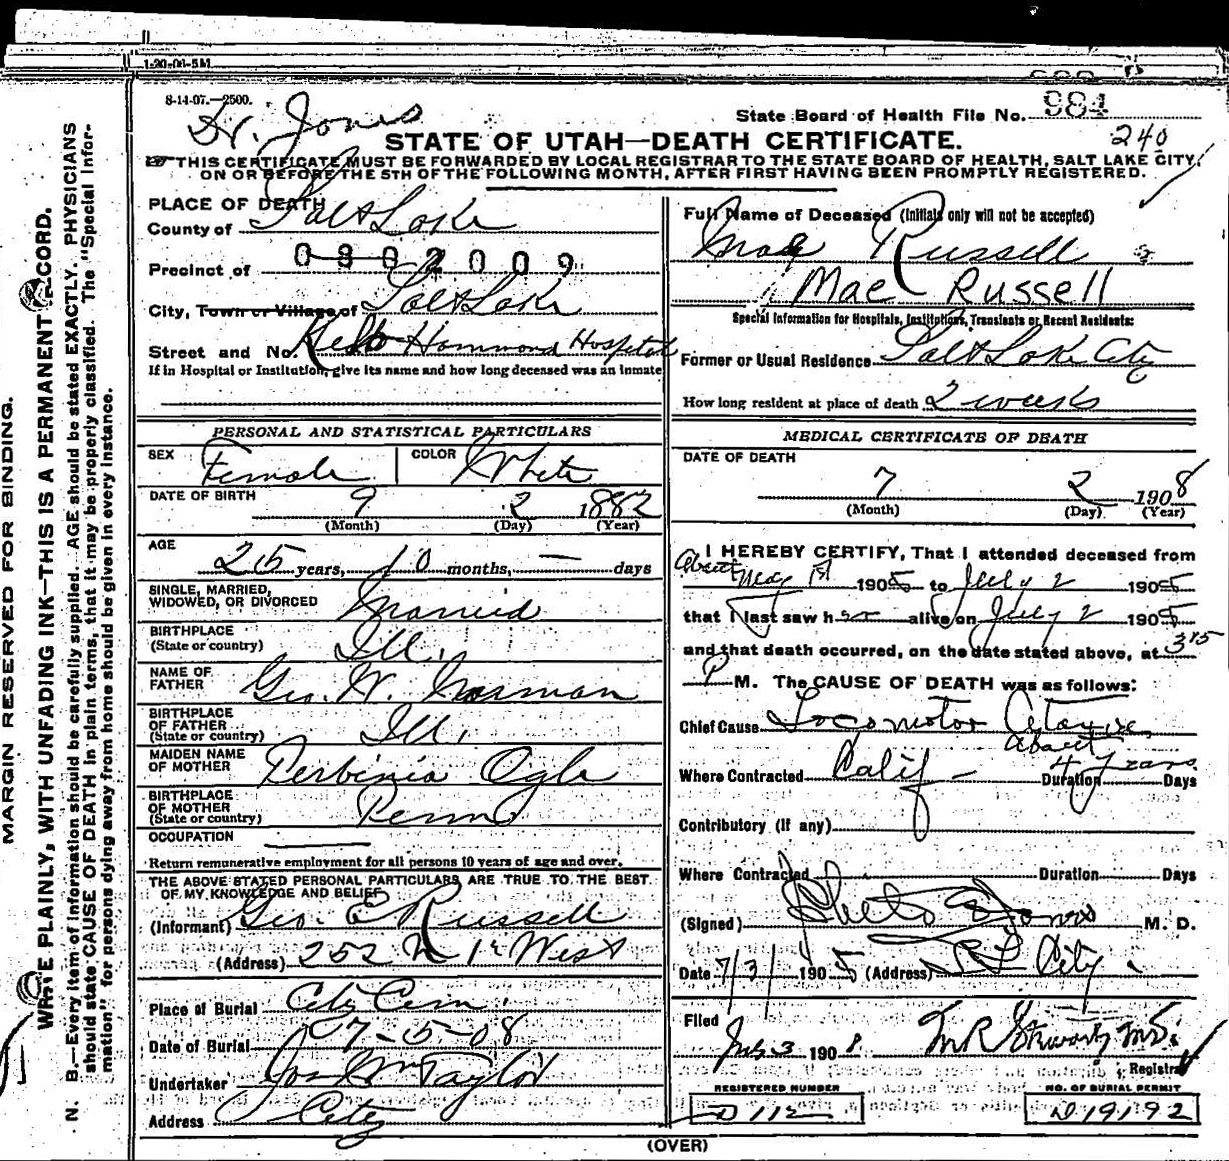 1-20-08-5M
8-14-07.—2500.
Dr. Jones
State Board of Health File No. 984
240
STATE OF UTAH—DEATH CERTIFICATE.
THIS CERTIFICATE MUST BE FORWARDED BY LOCAL REGISTRAR TO THE STATE BOARD OF HEALTH, SALT LAKE CITY,
ON OR BEFORE THE 5TH OF THE FOLLOWING MONTH, AFTER FIRST HAVING BEEN PROMPTLY REGISTERED.
MARGIN RESERVED FOR BINDING.
WRITE PLAINLY, WITH UNFADING INK—THIS IS A PERMANENT RECORD.
N. B.—Every item of information should be carefully supplied. AGE should be stated EXACTLY. PHYSICIANS
should state CAUSE OF DEATH in plain terms, that it may be properly classified. The "Special Infor-
mation" for persons dying away from home should be given in every instance.
PLACE OF DEATH
County of Salt Lake
0302009
Precinct of
City, Town or Village of Salt Lake
Street and No. Hammond Hospital
If in Hospital or Institution, give its name and how long deceased was an inmate
PERSONAL AND STATISTICAL PARTICULARS
SEX Female COLOR White
DATE OF BIRTH 9 2 1882
(Month) (Day) (Year)
AGE
25 years, 10 months, — days
SINGLE, MARRIED,
WIDOWED, OR DIVORCED Married
BIRTHPLACE
(State or country) Ill.
NAME OF
FATHER Geo. W. Norman
BIRTHPLACE
OF FATHER
(State or country) Ill.
MAIDEN NAME
OF MOTHER Ogle
BIRTHPLACE
OF MOTHER
(State or country) Penn
OCCUPATION
Return remunerative employment for all persons 10 years of age and over.
THE ABOVE STATED PERSONAL PARTICULARS ARE TRUE TO THE BEST
OF MY KNOWLEDGE AND BELIEF
(Informant) Geo. E Russell
(Address) 252 N 1st West
Place of Burial City Cem.
Date of Burial 7-5-08
Undertaker Jos Wm Taylor
Address City
Full Name of Deceased (Initials only will not be accepted)
Mae Russell
Mae Russell
Special Information for Hospitals, Institutions, Transients or Recent Residents:
Former or Usual Residence Salt Lake City
How long resident at place of death 2 weeks
MEDICAL CERTIFICATE OF DEATH
DATE OF DEATH
7 2 1908
(Month) (Day) (Year)
I HEREBY CERTIFY, That I attended deceased from
about May 1st 1908 to July 2 1908
that I last saw her alive on July 2 1908
and that death occurred, on the date stated above, at 3 15
P M. The CAUSE OF DEATH was as follows:
Chief Cause Locomotor Ataxia
about
Where Contracted Calif - Duration 4 years Days
Contributory (if any)
Where Contracted Duration Days
(Signed) Jones M. D.
Date 7/3/ 1908 (Address) S L City
Filed
July 3 1908. M R Stewart M.D.
Registrar
REGISTERED NUMBER
D 112
NO. OF BURIAL PERMIT
D 19192
(OVER)